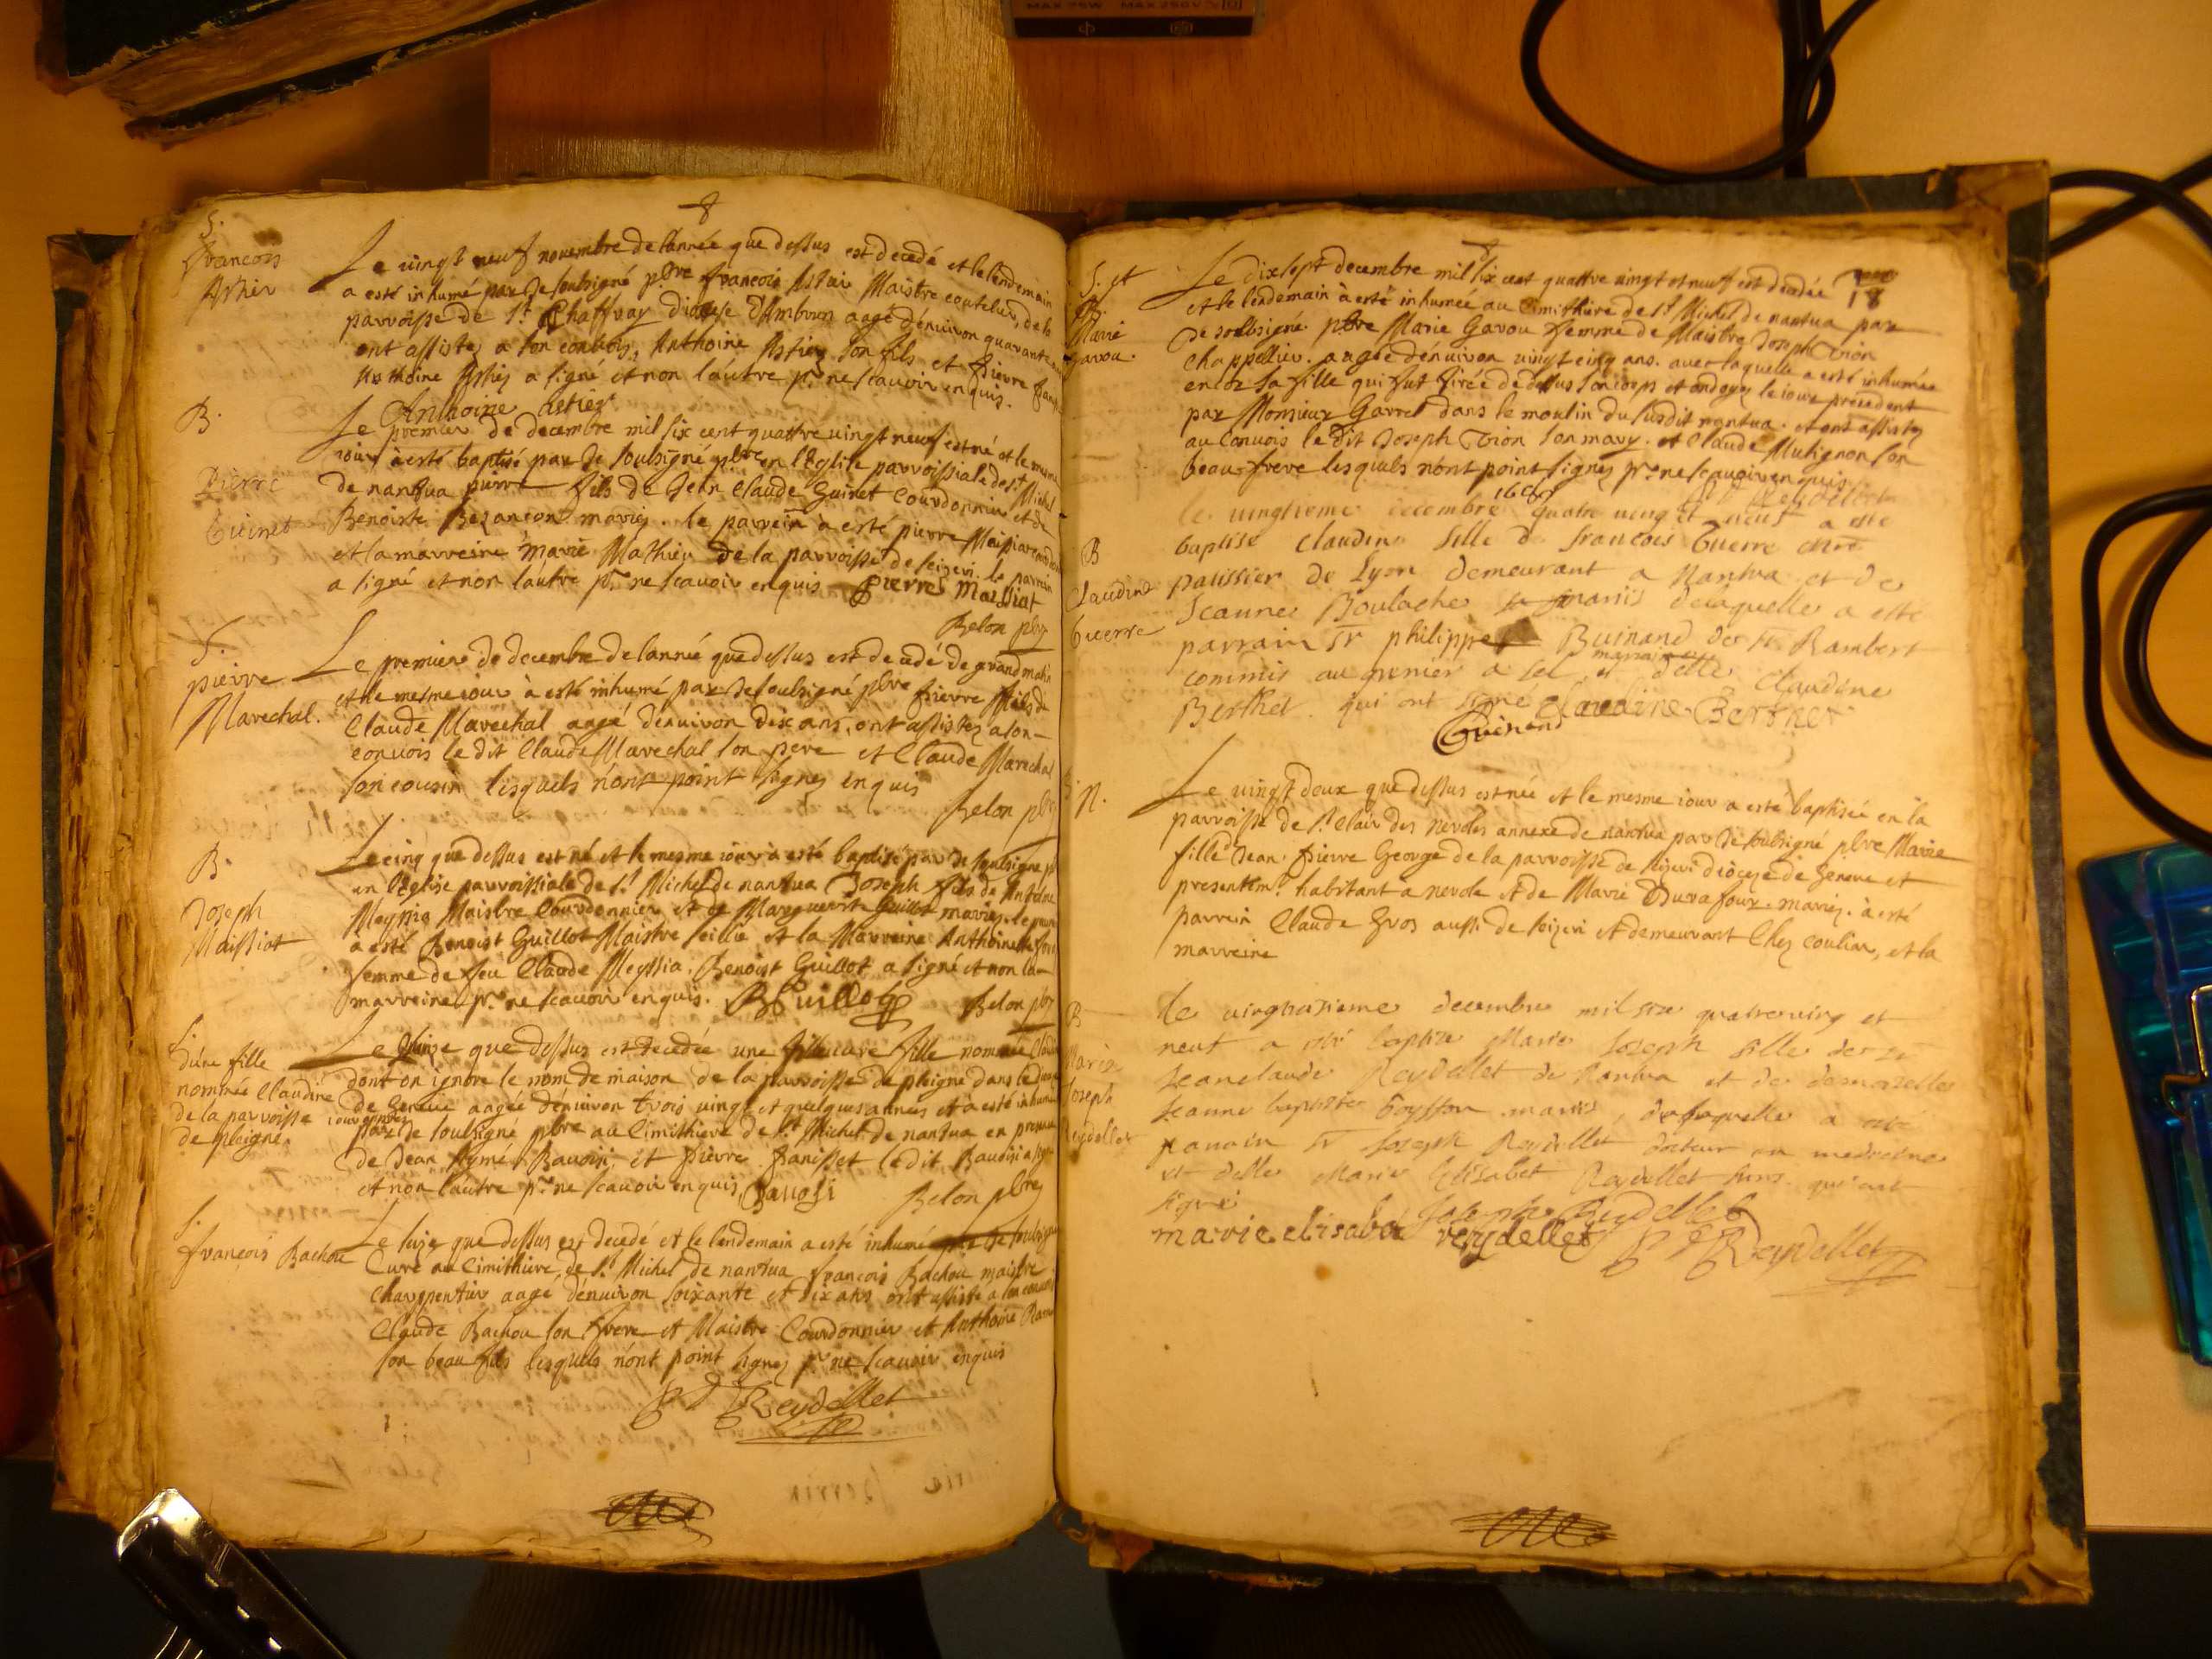 MAX 75W MAX 250V
S.
francois
Astier
Le vingt neuf novembre de lannée que dessus est decedé et le lendemain
a esté inhumé par Je soubsigné pbre francois Astier Maistre coutelier, de la
parroisse de St Chaffray diocese d'Ambrun aagé dénuiron quarante
ont assistez a son conuois, Anthoine Astier son fils et pierre
Anthoine Astier a signé et non láutre pr ne scauoir enquis.
Anthoine Astier
B.
Pierre
Guinet
Le premier de decembre mil six cent quattre vingt neuf est né et le mesme
iour à esté baptisé par Je soubsigné pbre en l'Eglise parroissiale de St Michel
de nantua pierre fils de Jean Claude Guinet Courdonnier et de
Benoiste Bezancon mariez. le parrein a esté pierre
et la marreine marie Mathieu de la parroisse de seizeri. le parrein
a signé et non láutre pr ne scauoir enquis Pierre Maissiat
Belon pbr
S.
pierre
Marechal.
Le premier de decembre de lannée que dessus est decedé de grand matin
et le mesme iour à esté inhumé par Je soubsigné pbre pierre fils de
Claude Marechal aagé dénuiron dix ans, ont assistez a son
conuois le dit Claude Marechal son pere et Claude Marechal
son cousin lesquels n'ont point signez enquis
Belon pbr
B.
Joseph
Maissiat
Le cinq que dessus est né et le mesme iour à esté baptisé par Je soubsigné p
en l'Eglise parroissiale de St Michel de nantua Joseph fils de Antoine
Meyssia Maistre Courdonnier et de Marguerite Guillot mariez. le parrein
a esté Benoist Guillot Maistre et la Marreine Anthoinette
femme de feu Claude Meyssia. Benoist Guillot a signé et non la
marreine pr ne scauoir enquis. BGuillot Belon pbr
S.
d'une fille
nommée Claudine
de la parroisse
de pleigne
Le que dessus est decedée une fille nommée Claudine
dont on ignore le nom de maison de la parroisse de pleigne dans le diocese
de Geneue aagée dénuiron trois vingt et quelques années et à esté inhumée
par Je soubsigné pbre au Cimithiere de St Michel de nantua en presence
de Jean Aymé Bauosi, et pierre Panisset le dit Baudisi a signé
et non láutre pr ne scauoir enquis, Bauosi Belon pbre
S.
francois Bachou
Le seize que dessus est decedé et le lendemain a esté inhumé par Je soubsigné
Curé au Cimithiere de St Michel de nantua francois Bachou maistre
Charpentier aagé dénuiron soixante et dix ans ont assisté a son conuois
Claude Bachou son frere et Maistre Courdonnier et Anthoine
son beau fils lesquels n'ont point signez pr ne scauoir enquis
Reydellet
18
S. et
Marie
Gavou.
Le dixsept decembre mil six cent quattre vingt et neuf est decedée
et le lendemain à esté inhumée au Cimithiere de St Michel de nantua par
Je soubsigné pbre Marie Gavou femme de Maistre Joseph Vion
Chappellier. aagée dénuiron vingt cinq ans. avec laquelle a esté inhumée
encor sa fille qui fut tirée de dessus son corps et ondoyée le iour precedent
par Monsieur Garrel dans le moulin du susdit nantua. et ont assistez
au conuois le dit Joseph Vion son mary. et Claude Mutignon son
beau-frere lesquels n'ont point signez pr ne scauoir enquis.
Reydellet
B
Claudine
Guerre
1689
le vingtieme decembre quatre vingt et neuf a esté
baptise Claudine fille de francois Guerre
patissier de Lyon demeurant a Nantua et de
Jeanne Boulache mariés de laquelle a esté
parrain Sr philippe Buinand de St Rambert
commis au grenier a sel et marraine delle Claudine
Berthet qui ont signé Claudine Berthet
Buinand
N.
Le vingt deux que dessus est née et le mesme iour a esté baptisée en la
parroisse de St Clair des nevoles annexe de nantua par Je soubsigné pbre Marie
fille de Jean pierre George de la parroisse de seizeri diocese de Geneue et
presentemt habitant à nevole et de Marie Durafour mariez. à esté
parrein Claude Gros aussi de seizeri et demeurant Chez coulian, et la
marreine
B
Marie
Joseph
Reydellet
le vingtroisieme decembre mil six quatreving et
neuf a esté baptize Marie Joseph fille de Sr
Jeanclaude Reydellet de Nantua et de damoizelle
Jeanne baptiste Goyffon mariés, de laquelle a esté
parrain Sr Joseph Reydellet docteur en medecine
et delle Marie Elisabet Reydellet qui ont
signé
Joseph Reydellet
marie elisabé reydellet Reydellet